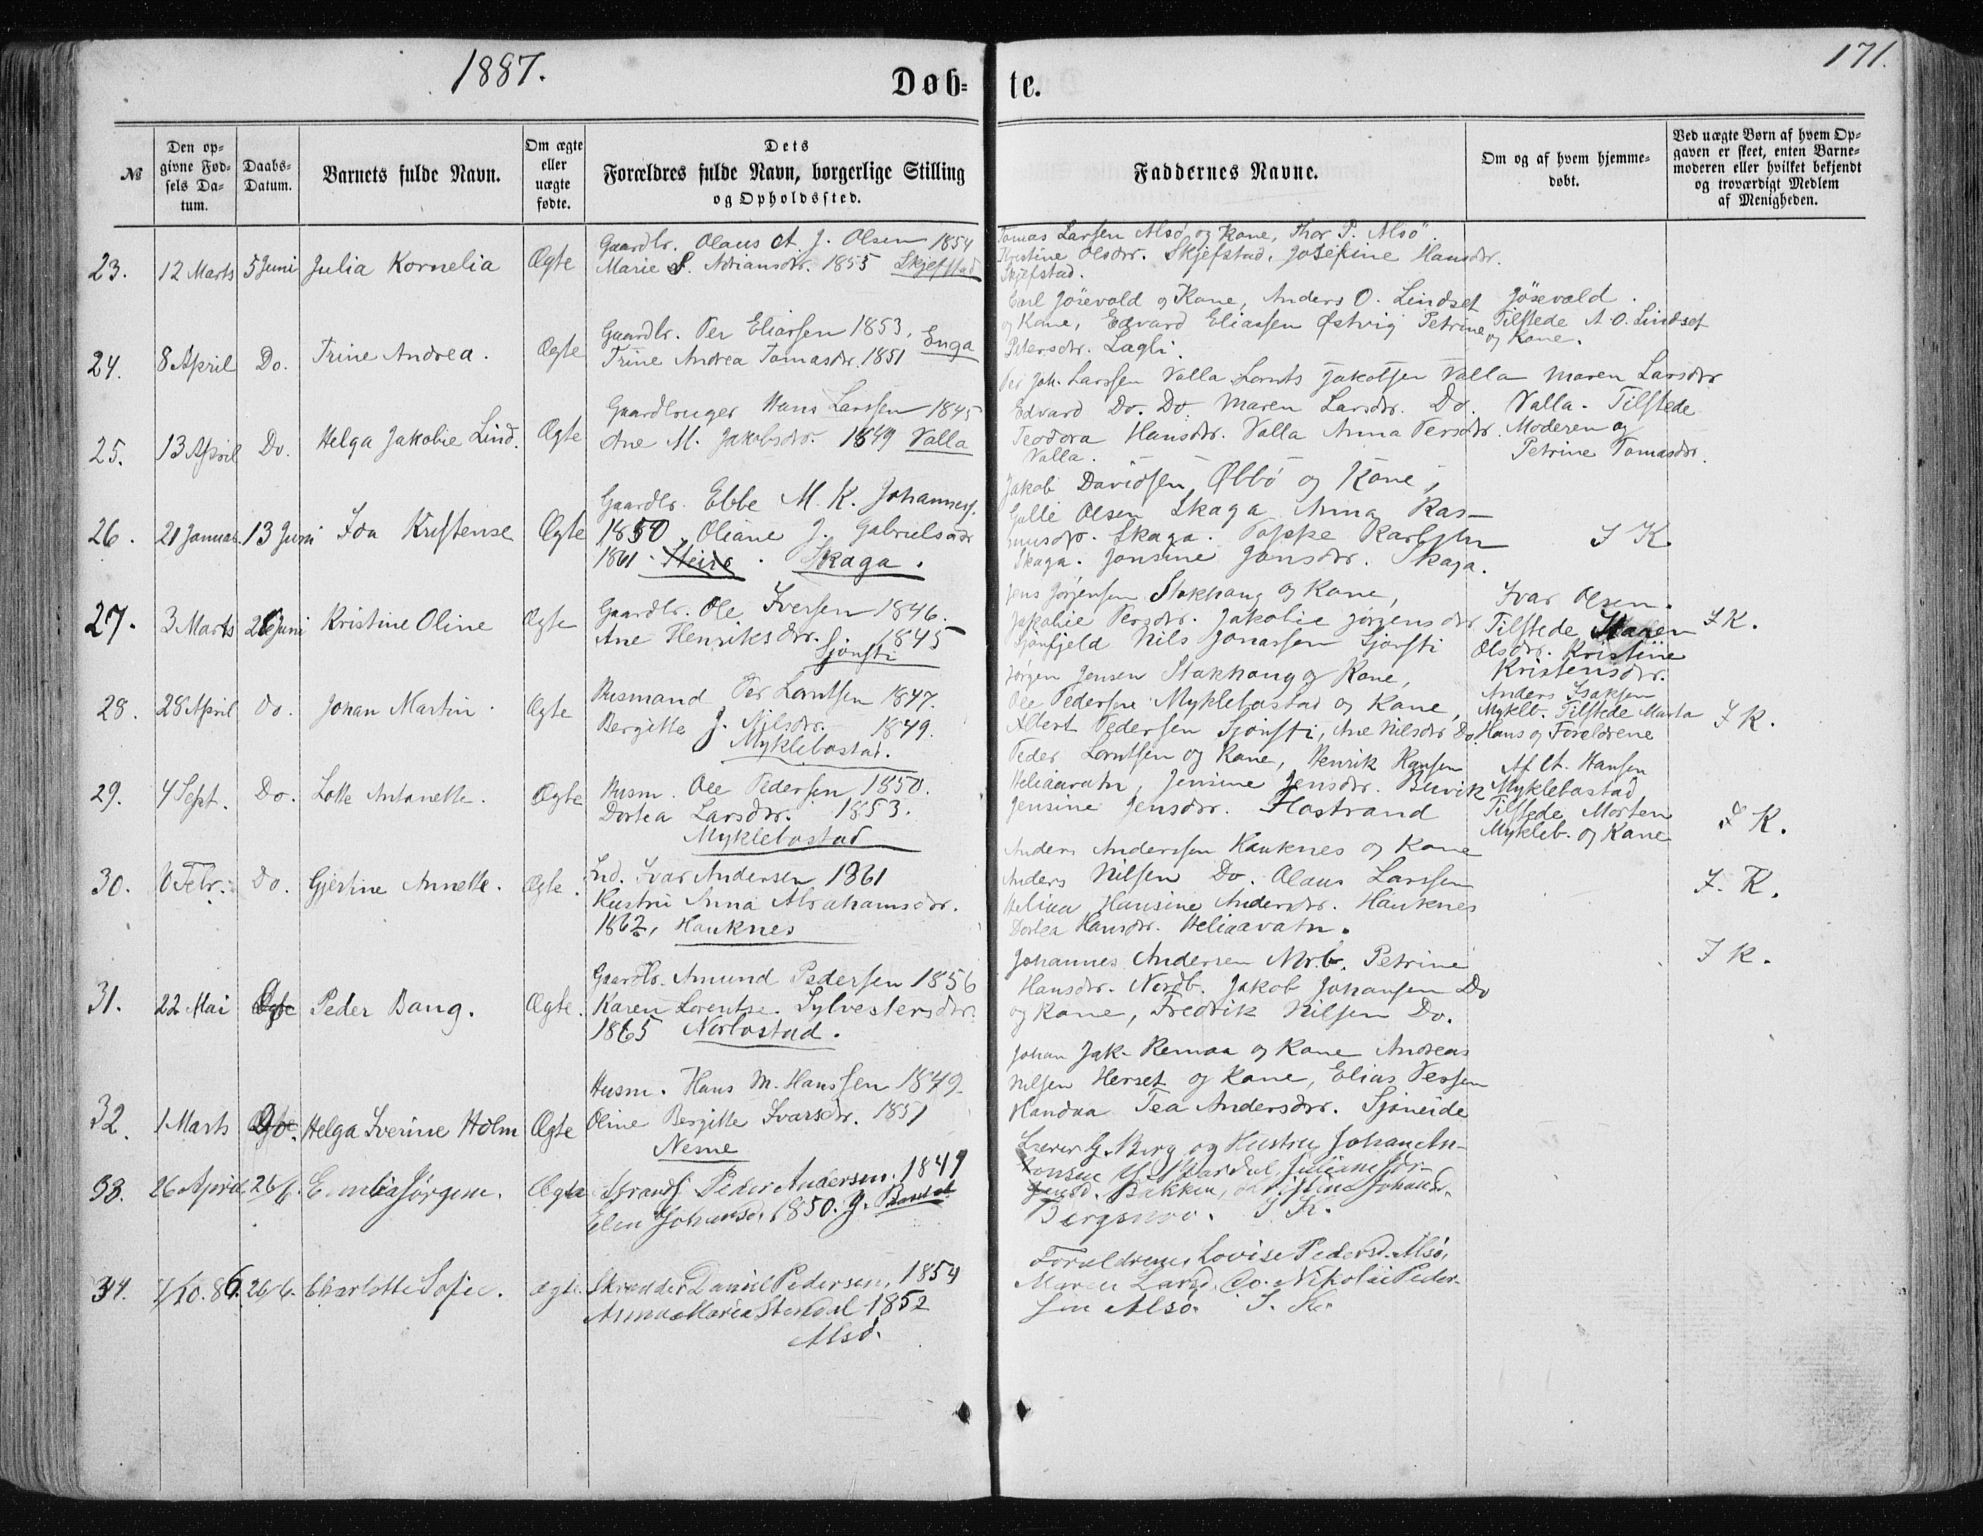 1887.
171.
Døb-
te.
№
Den op-
givne Fød-
sels Da-
tum.
Daabs-
Datum.
Barnets fulde Navn.
Om ægte
eller
uægte
fødte.
Dets
Forældres fulde Navn, borgerlige Stilling
og Opholdssted.
Faddernes Navne.
Om og af hvem hjemme-
døbt.
Ved uægte Børn af hvem Op-
gaven er skeet, enten Barne-
moderen eller hvilket bekjendt
og troværdigt Medlem
af Menigheden.
23.
12 Marts
5 Juni
Julia Kornelia
Ægte
Gaardbr. Olaus A. J. Olsen 1854
Marie S. Adriansdtr. 1855 Skjefstad
Tomas Larsen Alsø, og Kone, Thor P. Alsø
Kristine Olsdtr. Skjefstad, Josefine Hansdtr.
Skjefstad.
24.
8 April
Do.
Trine Andrea.
Ægte
Gaardbr. Per Eliassen 1853, Enga
Trine Andrea Tomasdtr. 1851
Carl Jøsevold og Kone, Anders O. Lindset
og Kone, Edvard Eliassen Østvig Petrine
Petersdtr. Lagli.
Jøsevald.
Tilstede A. O. Lindset
og Kone.
25.
13 April
Do.
Helga Jakobie Lind.
Ægte
Gaardbruger Hans Larssen 1845
Ane M. Jakobsdtr. 1849 Valla
Per Joh. Larssen Valla Lornts Jakobsen Valla
Edvard Do. Do. Maren Larsdtr. Do.
Teodora Hansdtr. Valla Anna Persdtr.
Valla.
Maren Larsdtr
Valla. Tilstede
Moderen og
Petrine Tomasdtr.
26.
21 Januar
13 Juni
Ida Kristense
Ægte
Gaardbr. Ebbe M. K. Johanness.
1850, Oliane J. Gabrielsdtr
1861. Skaga.
Jakob Davidsen Øbbø og Kone,
Gulle Olsen Skaga Anna Ras-
musdtr. Skaga. Toppe
Skaga. Jonsine Jonsdtr. Skaga.
I K.
27.
3 Marts
26 Juni
Kristine Oline
Ægte
Gaardbr. Ole Iversen 1846.
Ane Henriksdtr. 1845
Sjonsti
Jens Jørgensen Stokhaug og Kone,
Jakobie Persdtr. Jakobie Jørgensdtr
Sjonfjeld Nils Jonassen Sjonsti
Ivar Olsen.
Tilstede
Olsdtr. Kristine
Kristensdtr.
I K.
28.
28 April
Do.
Johan Martin.
Ægte
Husmand Per Lorntsen 1847.
Bergitte J. Nilsdtr. 1849.
Myklebostad.
Jørgen Jensen Stokhaug og Kone,
Ole Pedersen Myklebostad og Kone,
Albert Pedersen Sjonsti, Ane Nilsdtr Do.
Anders Isaksen
Mykleb. Tilstede Marta
Hans og Foreldrene
I K.
29.
4 Sept.
Do.
Lotte Antonette.
Ægte
Husm. Ole Pedersen 1850.
Dortea Larsdtr. 1853.
Myklebostad
Peder Lorntsen og Kone, Henrik Hansen
Heliaavatn, Jensine Jensdtr. Buvik
Jensine Jensdtr. Flostrand
Af Lt. Hansen
Myklebostad
Tilstede Morten
Mykleb. og Kone
I K.
30.
6 Febr.
Do.
Gjertine Annette.
Ægte.
Ind. Ivar Andersen 1861
Hustru Anna Abrahamsdtr.
1862, Hauknes
Anders Anderssen Hauknes og Kone
Anders Nilsen Do. Olaus Larssen
Heliaa Hansine Andersdtr. Hauknes
Dortea Hansdtr. Heliaavatn.
I. K.
31.
22 Mai
Peder Bang.
Ægte.
Gaardbr. Amund Pedersen 1856
Karen Lorentse Sylvestersdtr.
1865 Norbostad.
Johannes Andersen Nrb. Petrine
Hansdtr. Nordb. Jakob Johansen Do
og Kone, Fredrik Nilsen Do.
I K.
32.
1 Marts
Do.
Helga Iverine Holm
Ægte
Husm. Hans M. Hanssen 1849
Oline Bergitte Ivarsdtr. 1851
Nesne
Johan Jak. Remaa og Kone Andreas
Nilsen Herset og Kone, Elias Persen
Handaa Tea Andersdtr. Sjøneide
33.
26 April
26/6.
Emilie Jørgine.
Ægte
Strands. Peder Andersen. 1849
Elen Johansd. 1850.
Lærer G. Berg og Hustru, Johan An-
tonsen Juliane Jør-
gensd. Bakken, Johansd.
Bergsmo. I. K.
34.
7/10.86.
26/6.
Charlotte Sofie.
Ægte.
Skrædder Daniel Pedersen, 1854
Anna Maria Stendal 1852
Alsø.
Foreldrene, Lovise Pedersd. Alsø,
Maren Larsd. Do. Nikolai Peder-
sen Alsø. I. K.